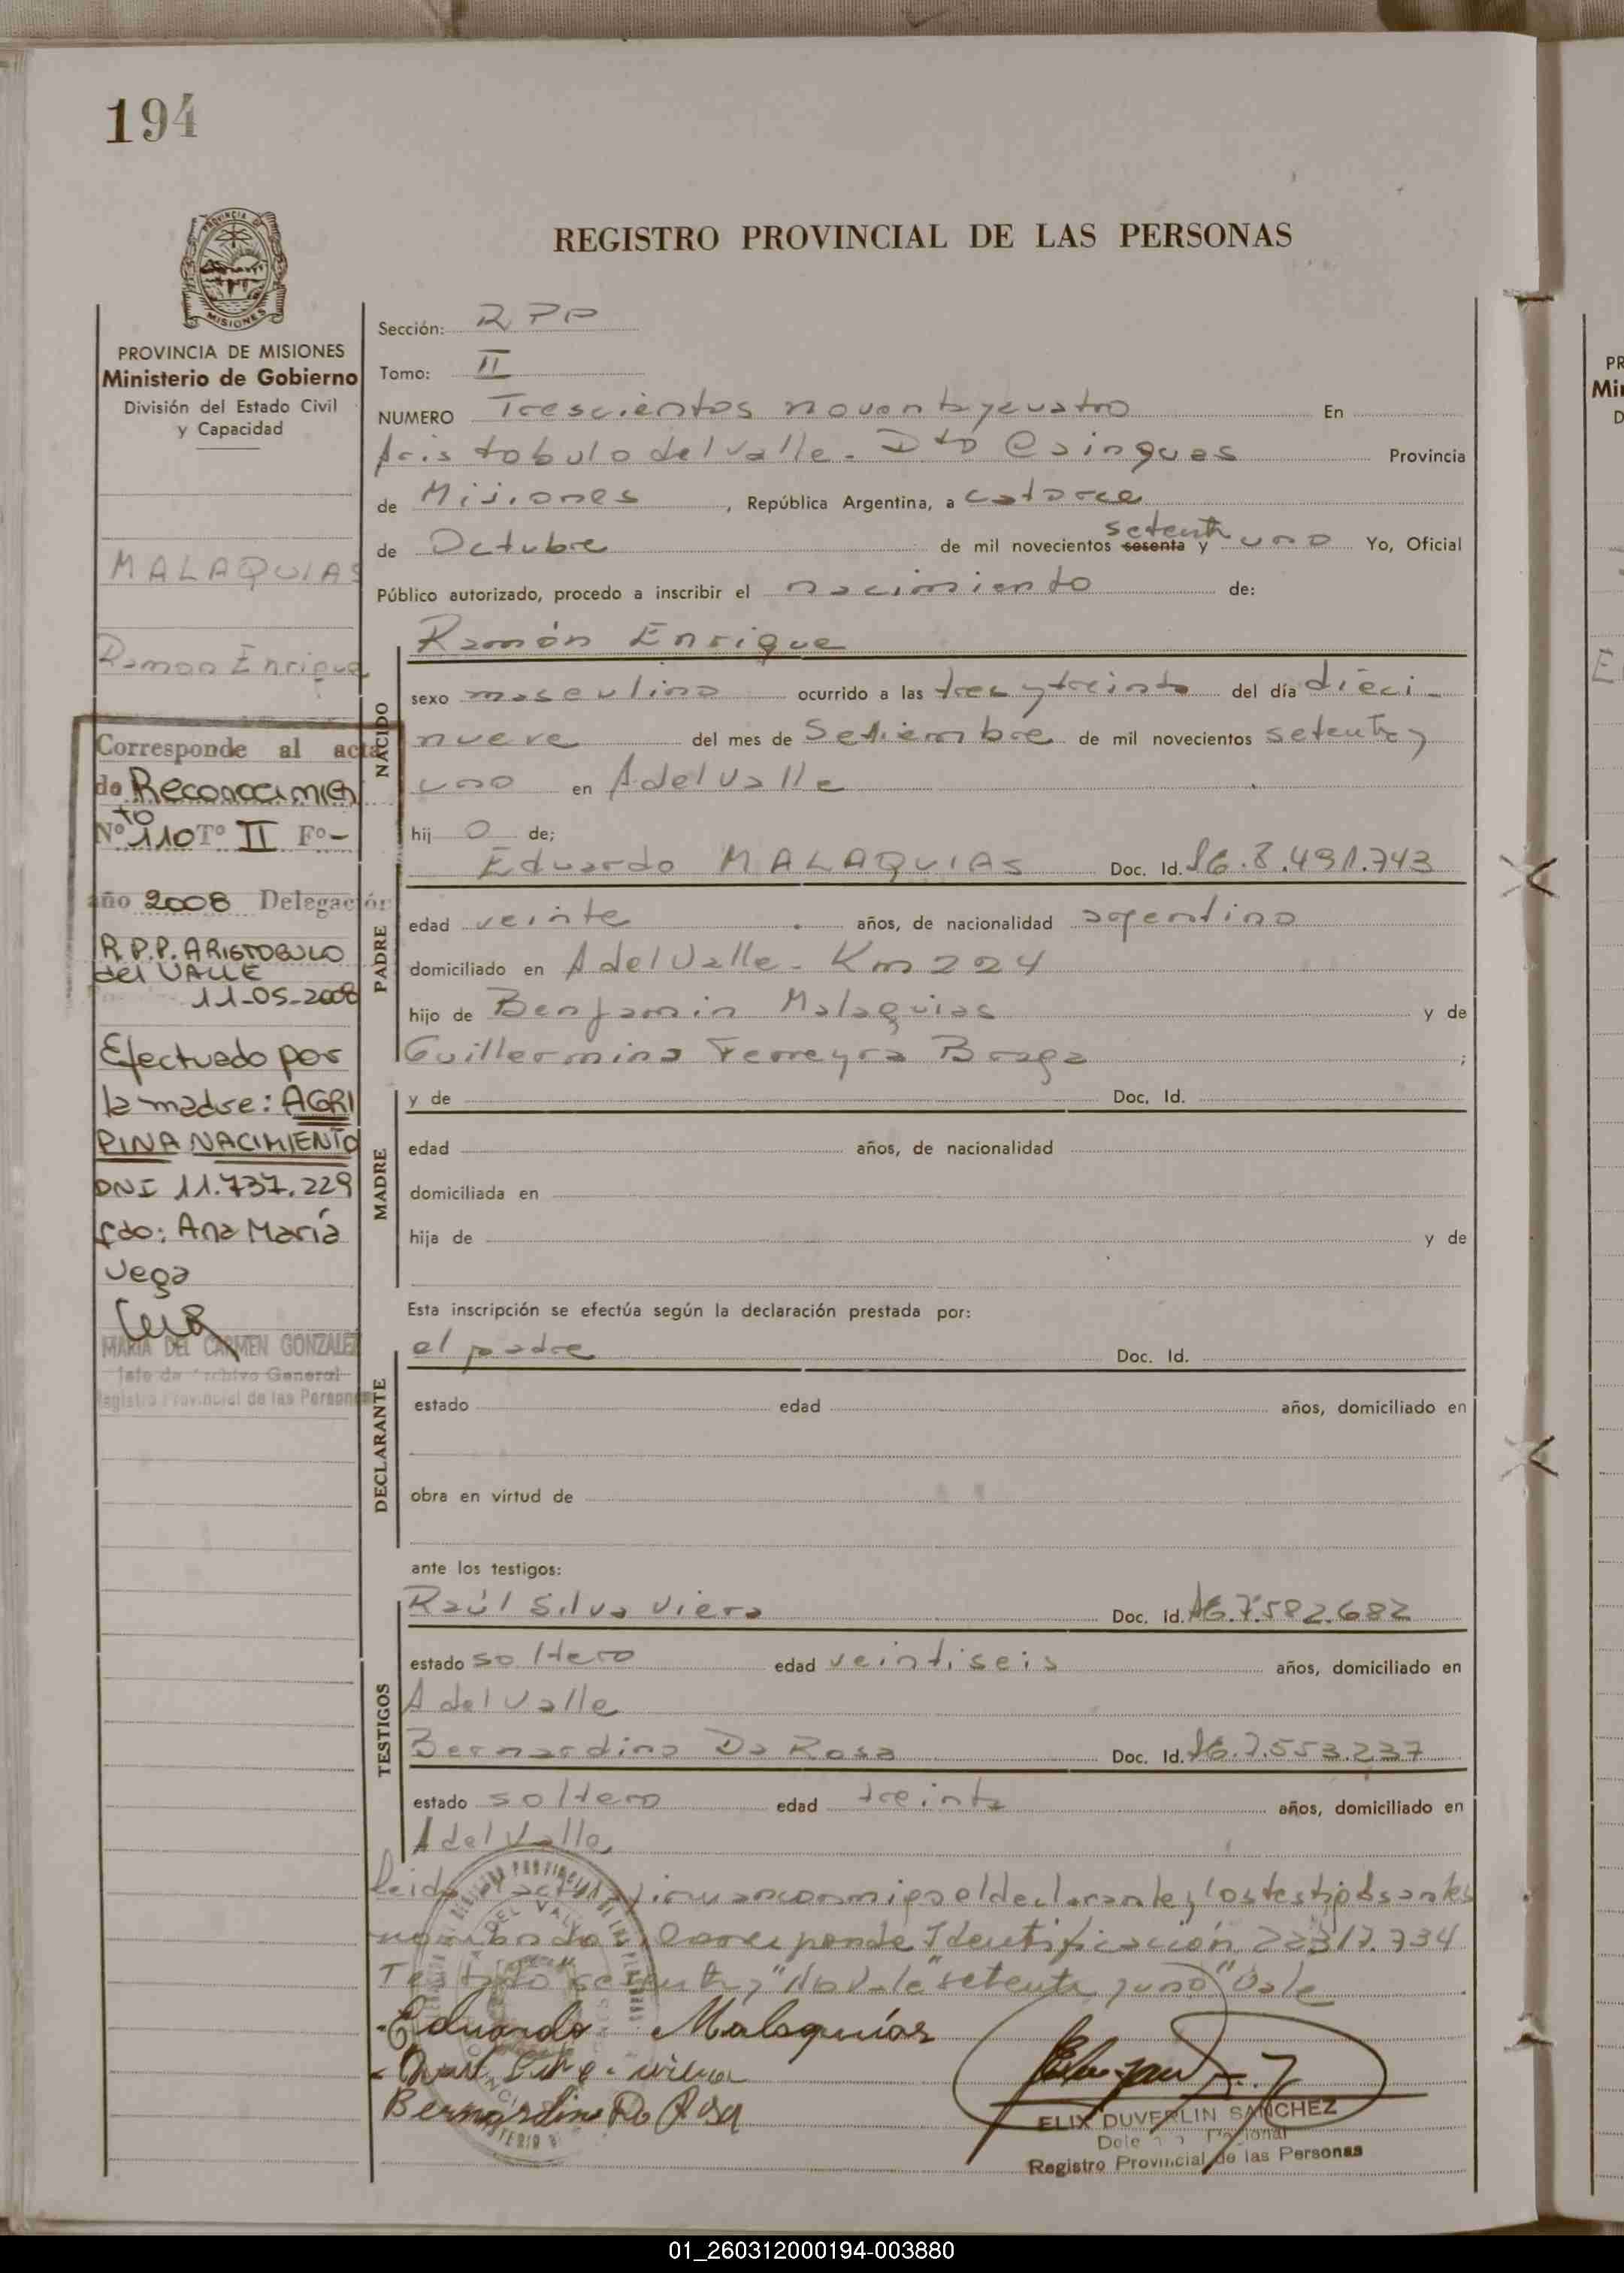 194
REGISTRO PROVINCIAL DE LAS PERSONAS
PROVINCIA DE MISIONES
Ministerio de Gobierno
División del Estado Civil
y Capacidad
MALAQUIAS
Ramon Enrique
Corresponde al acta
de Reconocimien
to
Nº 110 Tº II Fº -
año 2008 Delegación
R.P.P. ARISTOBULO
del VALLE
11-05-2008
Efectuado por
la madre: AGRI
PINA NACIMIENTO
DNI 11.737.229
fdo: Ana María
Vega
MARIA DEL CARMEN GONZALEZ
Jefe de Archivo General
Registro Provincial de las Personas
Sección: RPP
Tomo: II
NUMERO Trescientos noventa y cuatro En
Aristobulo del Valle - Dto Cainguas Provincia
de Misiones, República Argentina, a catorce
setenta
de Octubre de mil novecientos sesenta y uno Yo, Oficial
Público autorizado, procedo a inscribir el nacimiento de:
NACIDO
Ramón Enrique
sexo masculino ocurrido a las tres y treinta del día dieci-
nueve del mes de Setiembre de mil novecientos setenta y
uno en A del Valle
hij o de;
PADRE
Eduardo MALAQUIAS Doc. Id. 8.491.743
edad veinte años, de nacionalidad argentino
domiciliado en A del Valle - Km 224
hijo de Benjamin Malaquias y de
Guillermina Ferreyra Braga ;
MADRE
y de Doc. Id.
edad años, de nacionalidad
domiciliada en
hija de y de
Esta inscripción se efectúa según la declaración prestada por:
DECLARANTE
el padre Doc. Id.
estado edad años, domiciliado en
obra en virtud de
ante los testigos:
TESTIGOS
Raúl Silva Viera Doc. Id. 7.582.682
estado soltero edad veintiseis años, domiciliado en
A del Valle
Bernardino Da Rosa Doc. Id. 7.553.237
estado soltero edad treinta años, domiciliado en
A del Valle
Leida el acta firman conmigo el declarante y los testigos antes
nombrados. Corresponde Identificación 22317.734
Testado "sesenta y" No Vale "setenta y uno" Vale
Eduardo Malaquías
Bernardino Da Rosa
ELIX DUVERLIN SANCHEZ
Registro Provincial de las Personas
01_260312000194-003880